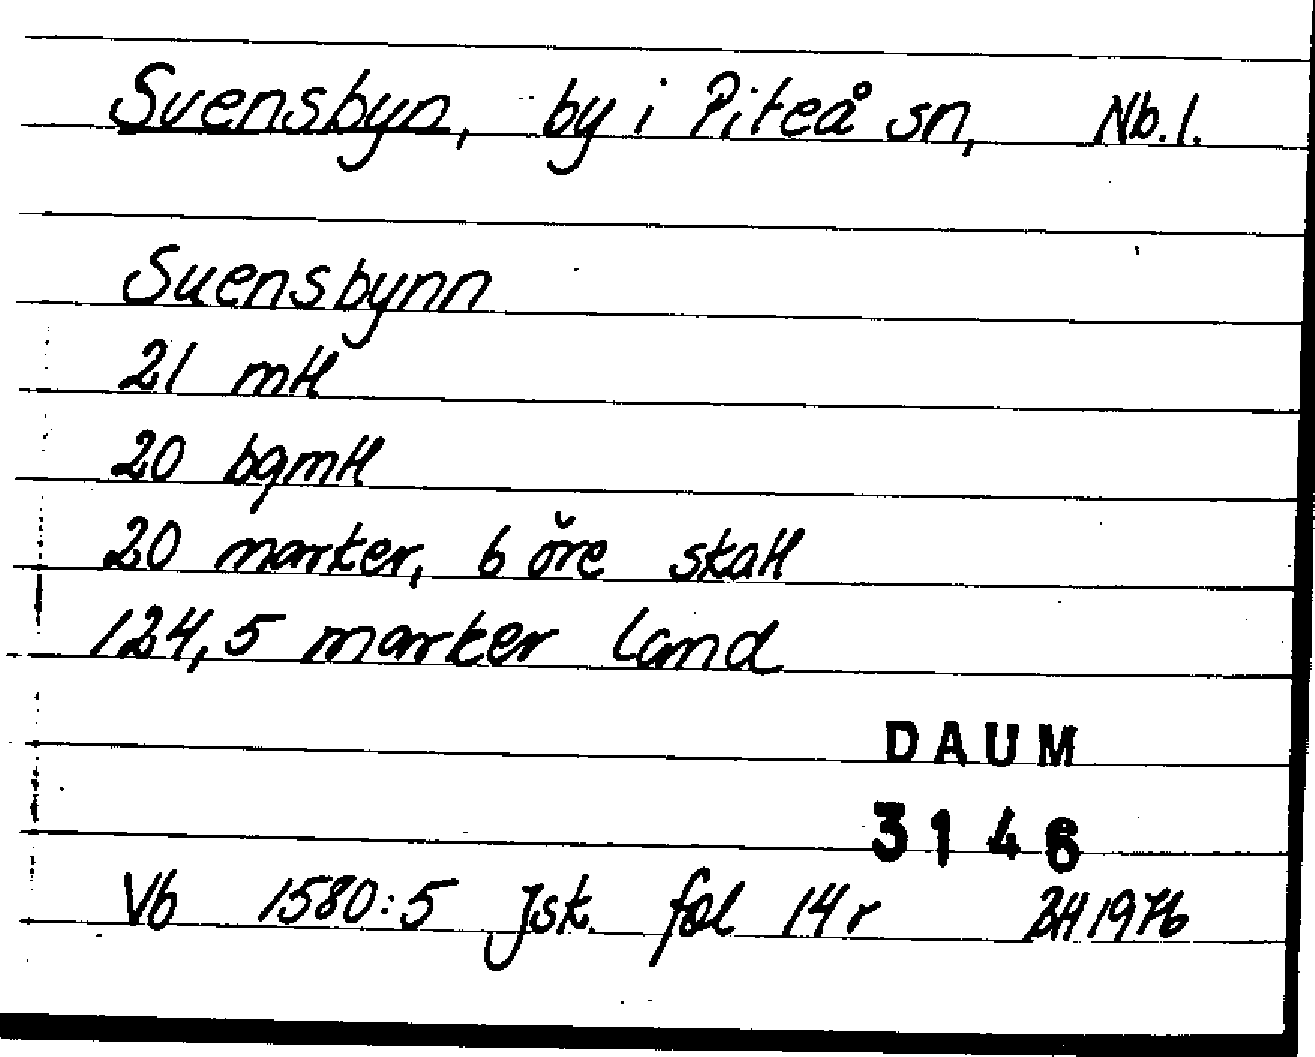 Svensbyn, by i Piteå sn, Nb.l.
Suensbynn
21 mtl
20 bgmtl
20 marker, 6 öre skatt
124,5 marker land
DAUM
3146
Vb 1580:5 Jsk. fol 14 r BH 1976